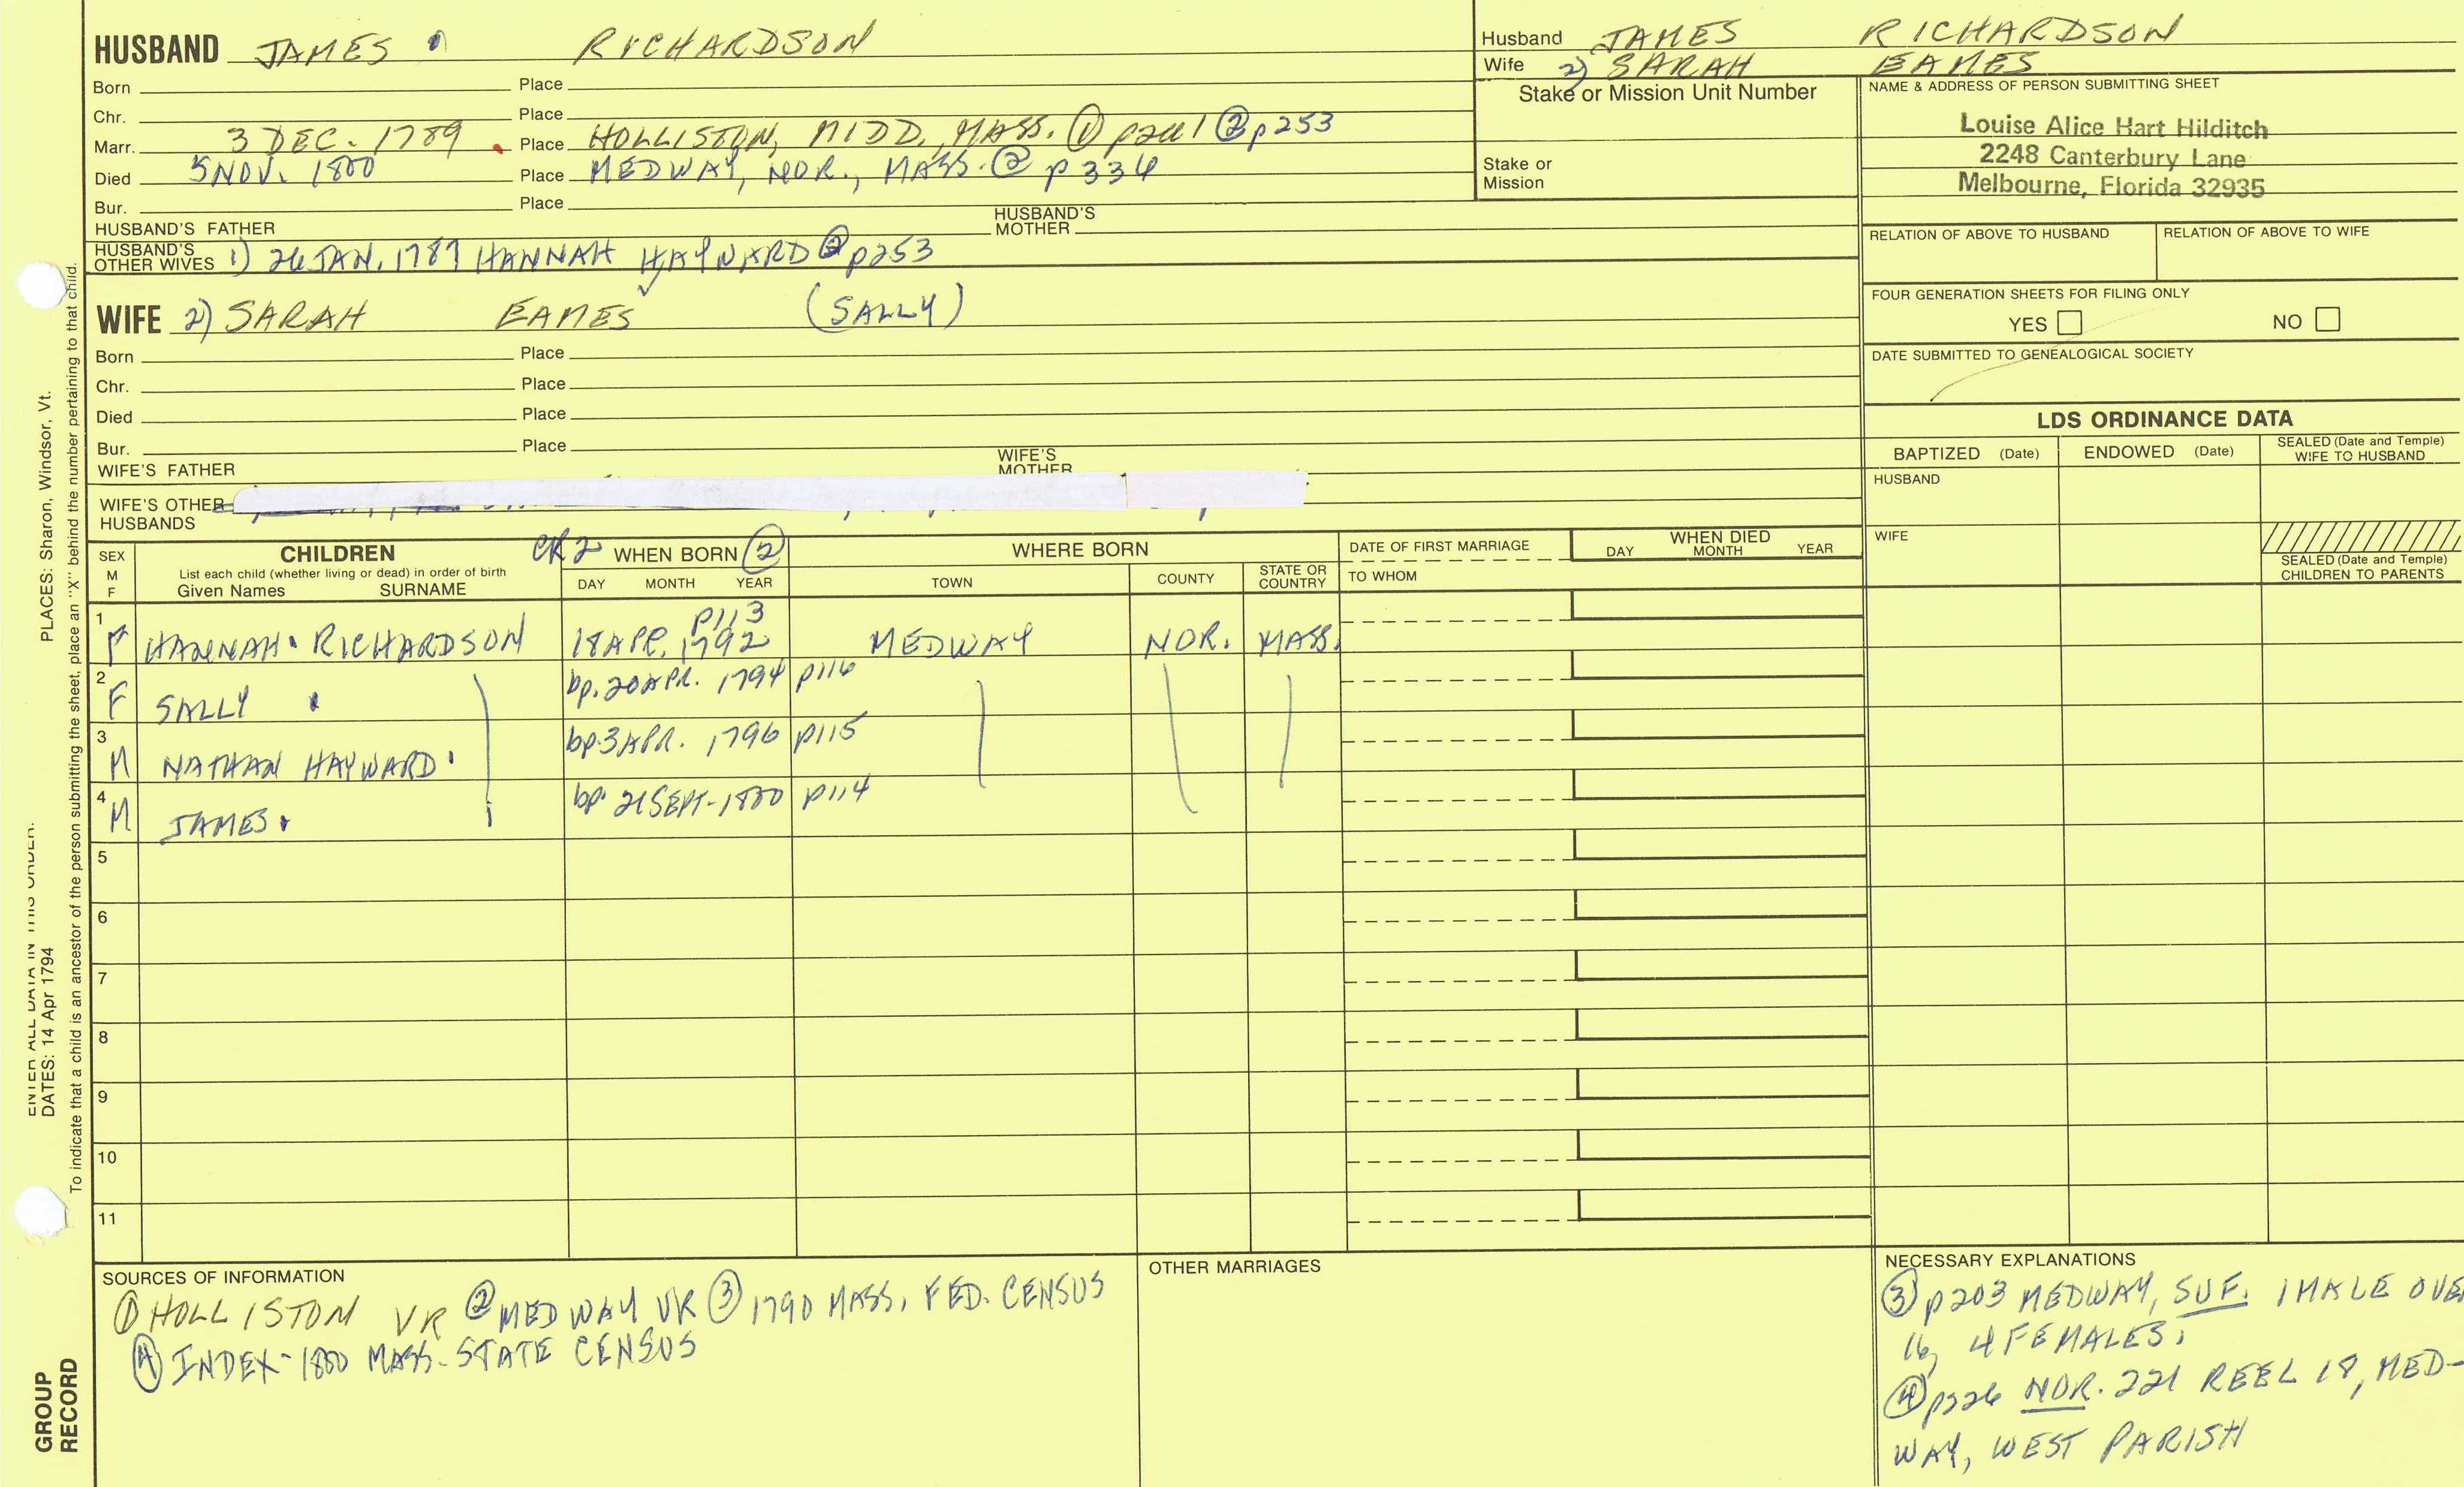 HUSBAND JAMES RICHARDSON
Born Place
Chr. Place
Marr. 3 DEC. 1789 Place HOLLISTON, MIDD, MASS. ① ② p253
Died 5 NOV. 1800 Place MEDWAY, NOR., MASS. ② p 334
Bur. Place
HUSBAND'S FATHER HUSBAND'S MOTHER
HUSBAND'S OTHER WIVES 1) JAN. HANNAH HAYWARD ② p253
WIFE 2) SARAH EAMES (SALLY)
Born Place
Chr. Place
Died Place
Bur. Place
WIFE'S FATHER WIFE'S MOTHER
WIFE'S OTHER HUSBANDS
Husband JAMES RICHARDSON
Wife 2) SARAH EAMES
Stake or Mission Unit Number
Stake or Mission
NAME & ADDRESS OF PERSON SUBMITTING SHEET
Louise Alice Hart Hilditch
2248 Canterbury Lane
Melbourne, Florida 32935
RELATION OF ABOVE TO HUSBAND RELATION OF ABOVE TO WIFE
FOUR GENERATION SHEETS FOR FILING ONLY
YES NO
DATE SUBMITTED TO GENEALOGICAL SOCIETY
LDS ORDINANCE DATA
BAPTIZED (Date) ENDOWED (Date) SEALED (Date and Temple) WIFE TO HUSBAND
HUSBAND
WIFE
SEALED (Date and Temple) CHILDREN TO PARENTS
SEX M F
CHILDREN CR2 WHEN BORN ② WHERE BORN DATE OF FIRST MARRIAGE WHEN DIED
List each child (whether living or dead) in order of birth
Given Names SURNAME DAY MONTH YEAR TOWN COUNTY STATE OR COUNTRY TO WHOM DAY MONTH YEAR
p113
1 F HANNAH RICHARDSON 18 APR. 1792 MEDWAY NOR. MASS.
2 F SALLY bp. 20 APR. 1794 p116
3 M NATHAN HAYWARD bp. 3 APR. 1796 p115
4 M JAMES bp. 21 SEPT. 1800 p114
5
6
7
8
9
10
11
SOURCES OF INFORMATION
① HOLLISTON VR ② MEDWAY VR ③ 1790 MASS. FED. CENSUS
④ INDEX - 1800 MASS. STATE CENSUS
OTHER MARRIAGES
NECESSARY EXPLANATIONS
③ p203 MEDWAY, SUF. 1 MALE OVE
16, 4 FEMALES.
④ NOR. 221 REEL 18, MED-
WAY, WEST PARISH
PLACES: Sharon, Windsor, Vt.
ENTER ALL DATA IN THIS ORDER:
DATES: 14 Apr 1794
To indicate that a child is an ancestor of the person submitting the sheet, place an "X" behind the number pertaining to that child.
GROUP
RECORD